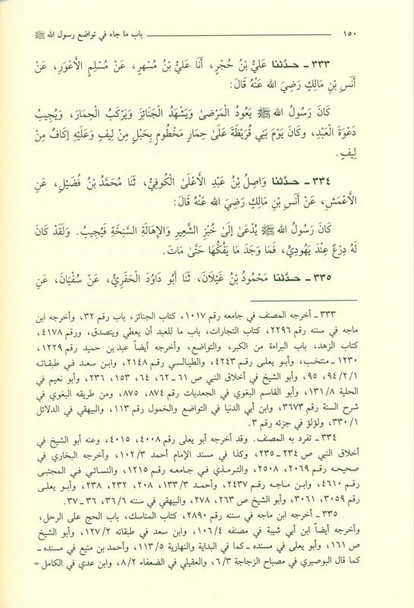 ١٥٠ باب ما جاء في تواضع رسول الله ﷺ
٣٣٣ ـ حدّثنا عَلِيُّ بْنُ حُجْرٍ، أَنَا عَلِيُّ بْنُ مُسْهِرٍ، عَنْ مُسْلِمٍ الأَعْوَرِ، عَنْ
أَنَسِ بْنِ مَالِكٍ رَضِيَ اللهُ عَنْهُ قَالَ:
كَانَ رَسُولُ اللهِ ﷺ يَعُودُ الْمَرْضَىٰ وَيَشْهَدُ الْجَنَائِزَ وَيَرْكَبُ الْحِمَارَ، وَيُجِيبُ
دَعْوَةَ الْعَبْدِ، وَكَانَ يَوْمَ بَنِي قُرَيْظَةَ عَلَىٰ حِمَارٍ مَخْطُومٍ بِحَبْلٍ مِنْ لِيفٍ وَعَلَيْهِ إِكَافٌ مِنْ
لِيفٍ.
٣٣٤ ـ حدّثنا وَاصِلُ بْنُ عَبْدِ الأَعْلَىٰ الْكُوفِيُّ، ثَنَا مُحَمَّدُ بْنُ فُضَيْلٍ، عَنِ
الأَعْمَشِ، عَنْ أَنَسِ بْنِ مَالِكٍ رَضِيَ اللهُ عَنْهُ قَالَ:
كَانَ رَسُولُ اللهِ ﷺ يُدْعَىٰ إِلَىٰ خُبْزِ الشَّعِيرِ وَالإِهَالَةِ السَّنِخَةِ فَيُجِيبُ. وَلَقَدْ كَانَ
لَهُ دِرْعٌ عِنْدَ يَهُودِيٍّ، فَمَا وَجَدَ مَا يَفُكُّهَا حَتَّىٰ مَاتَ.
٣٣٥ ـ حدّثنا مَحْمُودُ بْنُ غَيْلَانَ، ثَنَا أَبُو دَاوُدَ الْحَفَرِيُّ، عَنْ سُفْيَانَ، عَنِ
٣٣٣ ـ أخرجه المصنف في جامعه رقم ١٠١٧، كتاب الجنائز، باب رقم ٣٢، وأخرجه ابن
ماجه في سننه رقم ٢٢٩٦، كتاب التجارات، باب ما للعبد أن يعطي ويتصدق، ورقم ٤١٧٨،
كتاب الزهد، باب البراءة من الكبر، والتواضع، وأخرجه أيضاً عبد بن حميد رقم ١٢٢٩،
١٢٣٠ ـ منتخب، وأبو يعلى رقم ٤٢٤٣، والطيالسي رقم ٢١٤٨، وابن سعد في طبقاته
٩٤/٢/١، ٩٥، وأبو الشيخ في أخلاق النبي ص ٦١ـ٦٢، ٦٤، ١٥٣، ٢٣٦، وأبو نعيم في
الحلية ١٣١/٨، وأبو القاسم البغوي في الجعديات رقم ٨٧٤، ٨٧٥، ومن طريقه البغوي في
شرح السنة رقم ٣٦٧٣، وابن أبي الدنيا في التواضع والخمول رقم ١١٣، والبيهقي في الدلائل
٣٣٠/١، ولؤلؤ في جزئه رقم ٣.
٣٣٤ ـ تفرد به المصنف. وقد أخرجه أبو يعلى رقم ٤٠٠٨، ٤٠١٥، وعنه أبو الشيخ في
أخلاق النبي ص ٢٣٤ـ٢٣٥، وكذا في مسند الإمام أحمد ١٠٢/٣، وأخرجه البخاري في
صحيحه رقم ٢٠٦٩، ٢٥٠٨، والترمذي في جامعه رقم ١٢١٥، والنسائي في المجتبى
رقم ٤٦١٠، وابن ماجه رقم ٢٤٣٧، وأحمد ١٣٣/٣، ٢٠٨، ٢٣٢، ٢٣٨، وأبو يعلى
رقم ٣٠٥٩، ٣٠٦١، وأبو الشيخ ص ٢٦٣، ٢٧٨، والبيهقي في سننه ٣٦/٦، ٣٦ـ٣٧.
٣٣٥ ـ أخرجه ابن ماجه في سننه رقم ٢٨٩٠، كتاب المناسك، باب الحج على الرحل،
وأخرجه أيضاً ابن أبي شيبة في مصنفه ١٠٦/٤، وابن سعد في طبقاته ١٢٧/٢، وأبو الشيخ
ص ١٦١، وأبو يعلى في مسنده ـ كما في البداية والنهاية ١١٣/٥، وأحمد بن منيع في مسنده ـ
كما قال البوصيري في مصباح الزجاجة ٦/٣، والعقيلي في الضعفاء ٨/٢، وابن عدي في الكامل =